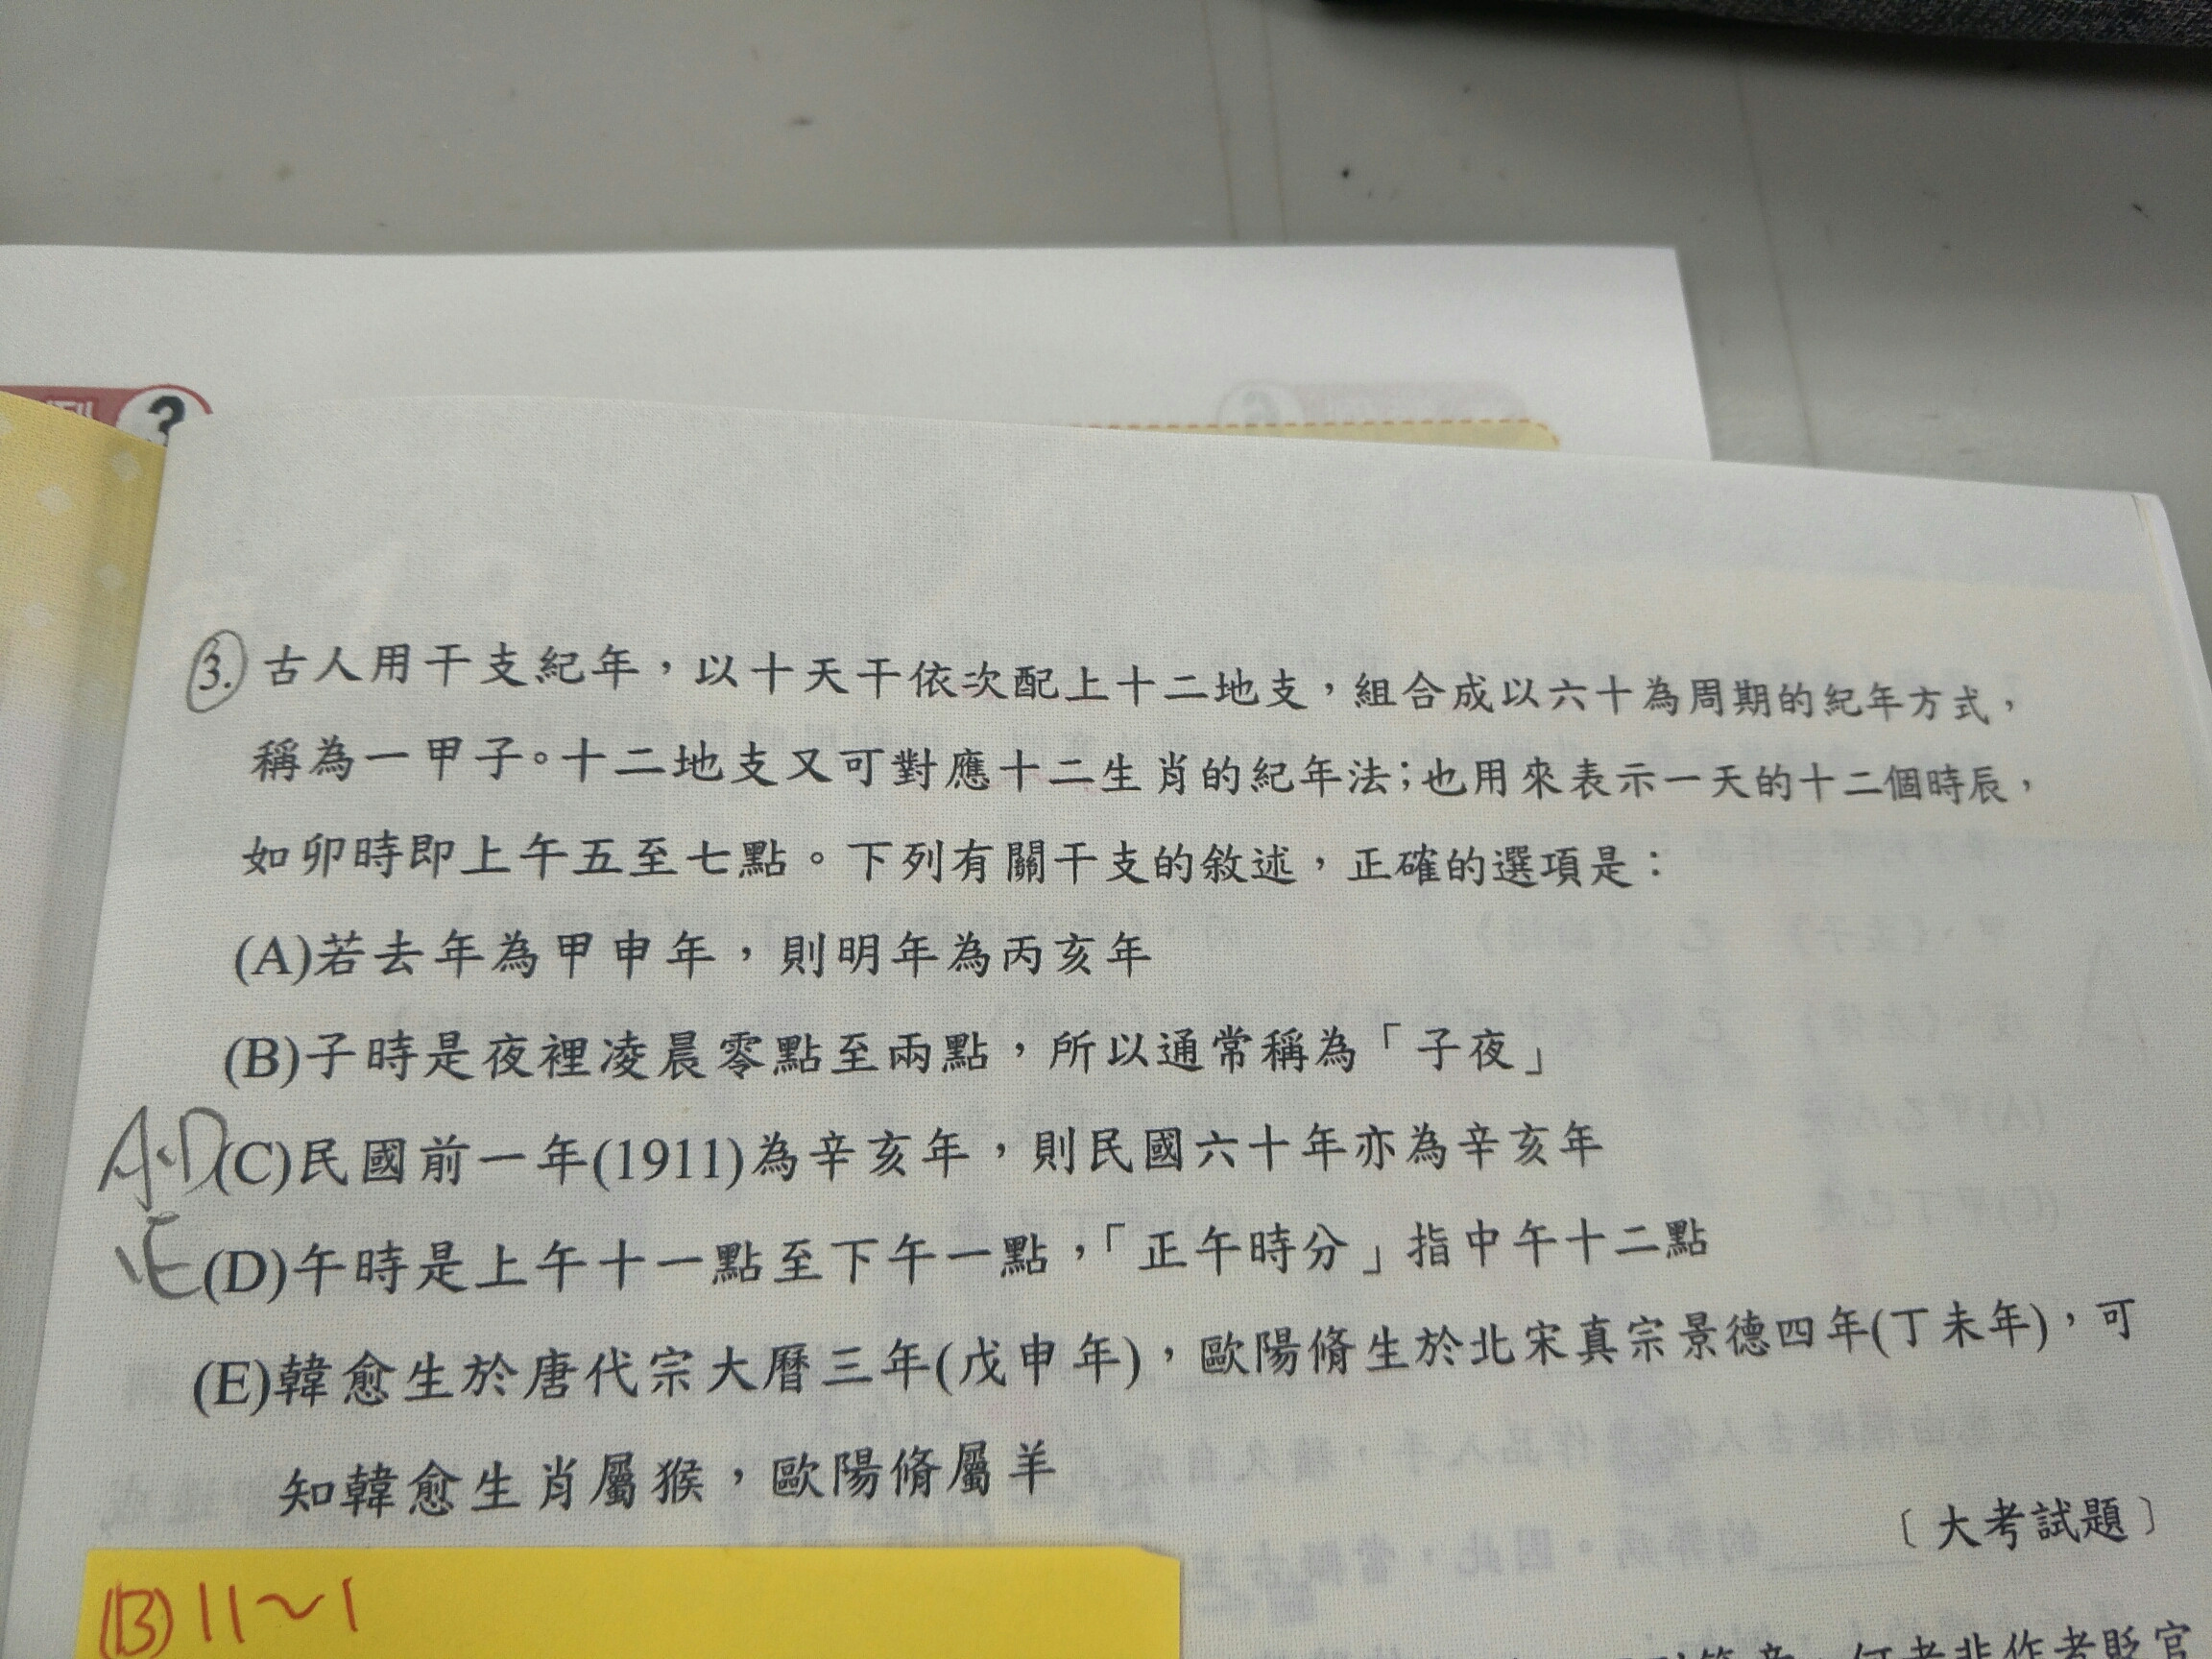 3.
古人用干支紀年，以十天干依次配上十二地支，組合成以六十為周期的紀年方式，
稱為一甲子。十二地支又可對應十二生肖的紀年法；也用來表示一天的十二個時辰，
如卯時即上午五至七點。下列有關干支的敘述，正確的選項是：
(A)若去年為甲申年，則明年為丙亥年
(B)子時是夜裡凌晨零點至兩點，所以通常稱為「子夜」
(C)民國前一年(1911)為辛亥年，則民國六十年亦為辛亥年
(D)午時是上午十一點至下午一點，「正午時分」指中午十二點
(E)韓愈生於唐代宗大曆三年(戊申年)，歐陽脩生於北宋真宗景德四年(丁未年)，可
知韓愈生肖屬猴，歐陽脩屬羊
〔大考試題〕
A、D
、E
(B) 11～1
何者非作者貶官